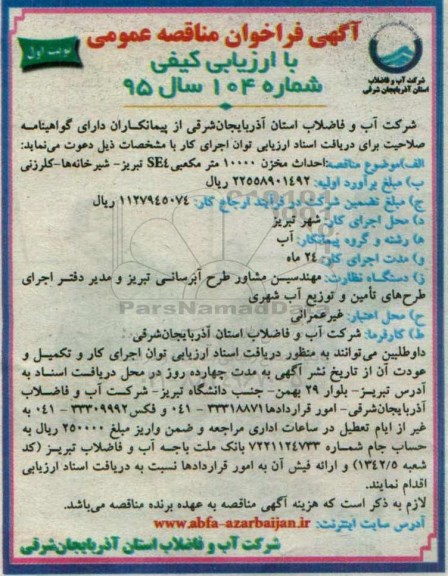 آگهی فراخوان مناقصه عمومی
نوبت اول
با ارزیابی کیفی
شماره ۱۰۴ سال ۹۵
شرکت آب و فاضلاب
استان آذربایجان شرقی
شرکت آب و فاضلاب استان آذربایجان‌شرقی از پیمانکاران دارای گواهینامه
صلاحیت برای دریافت اسناد ارزیابی توان اجرای کار با مشخصات ذیل دعوت می‌نماید:
الف)موضوع مناقصه:احداث مخزن ۱۰۰۰۰ متر مکعبی SE4 تبریز- شیرخانه‌ها-کلرزنی
ب) مبلغ برآورد اولیه: ۲۲۵۵۸۹۰۱۴۹۲ ریال
ج) مبلغ تضمین شرکت در فرآیند ارجاع کار: ۱۱۲۷۹۴۵۰۷۴ ریال
د) محل اجرای کار: شهر تبریز
ه) رشته و گروه پیمانکار: آب
و) مدت اجرای کار: ۲۴ ماه
ز) دستگاه نظارت: مهندسین مشاور طرح آبرسانی تبریز و مدیر دفتر اجرای
طرح‌های تأمین و توزیع آب شهری
ح) محل اعتبار: غیرعمرانی
ط) کارفرما: شرکت آب و فاضلاب استان آذربایجان‌شرقی
داوطلبین می‌توانند به منظور دریافت اسناد ارزیابی توان اجرای کار و تکمیل و
عودت آن از تاریخ نشر آگهی به مدت چهارده روز در محل دریافت اسناد به
آدرس تبریز- بلوار ۲۹ بهمن- جنب دانشگاه تبریز- شرکت آب و فاضلاب
آذربایجان‌شرقی- امور قراردادها ۳۳۳۱۸۸۷۱ - ۰۴۱ و فکس ۳۳۳۰۹۹۹۲ - ۰۴۱ به
غیر از ایام تعطیل در ساعات اداری مراجعه و ضمن واریز مبلغ ۲۵۰۰۰۰ ریال به
حساب جام شماره ۷۲۲۱۱۲۴۷۳۳ بانک ملت باجه آب و فاضلاب تبریز (کد
شعبه ۱۳۴۲/۵) و ارائه فیش آن به امور قراردادها نسبت به دریافت اسناد ارزیابی
اقدام نمایند.
لازم به ذکر است که هزینه آگهی مناقصه به عهده برنده مناقصه می‌باشد.
آدرس سایت اینترنت: www.abfa-azarbaijan.ir
شرکت آب و فاضلاب استان آذربایجان‌شرقی
ParsNamadData